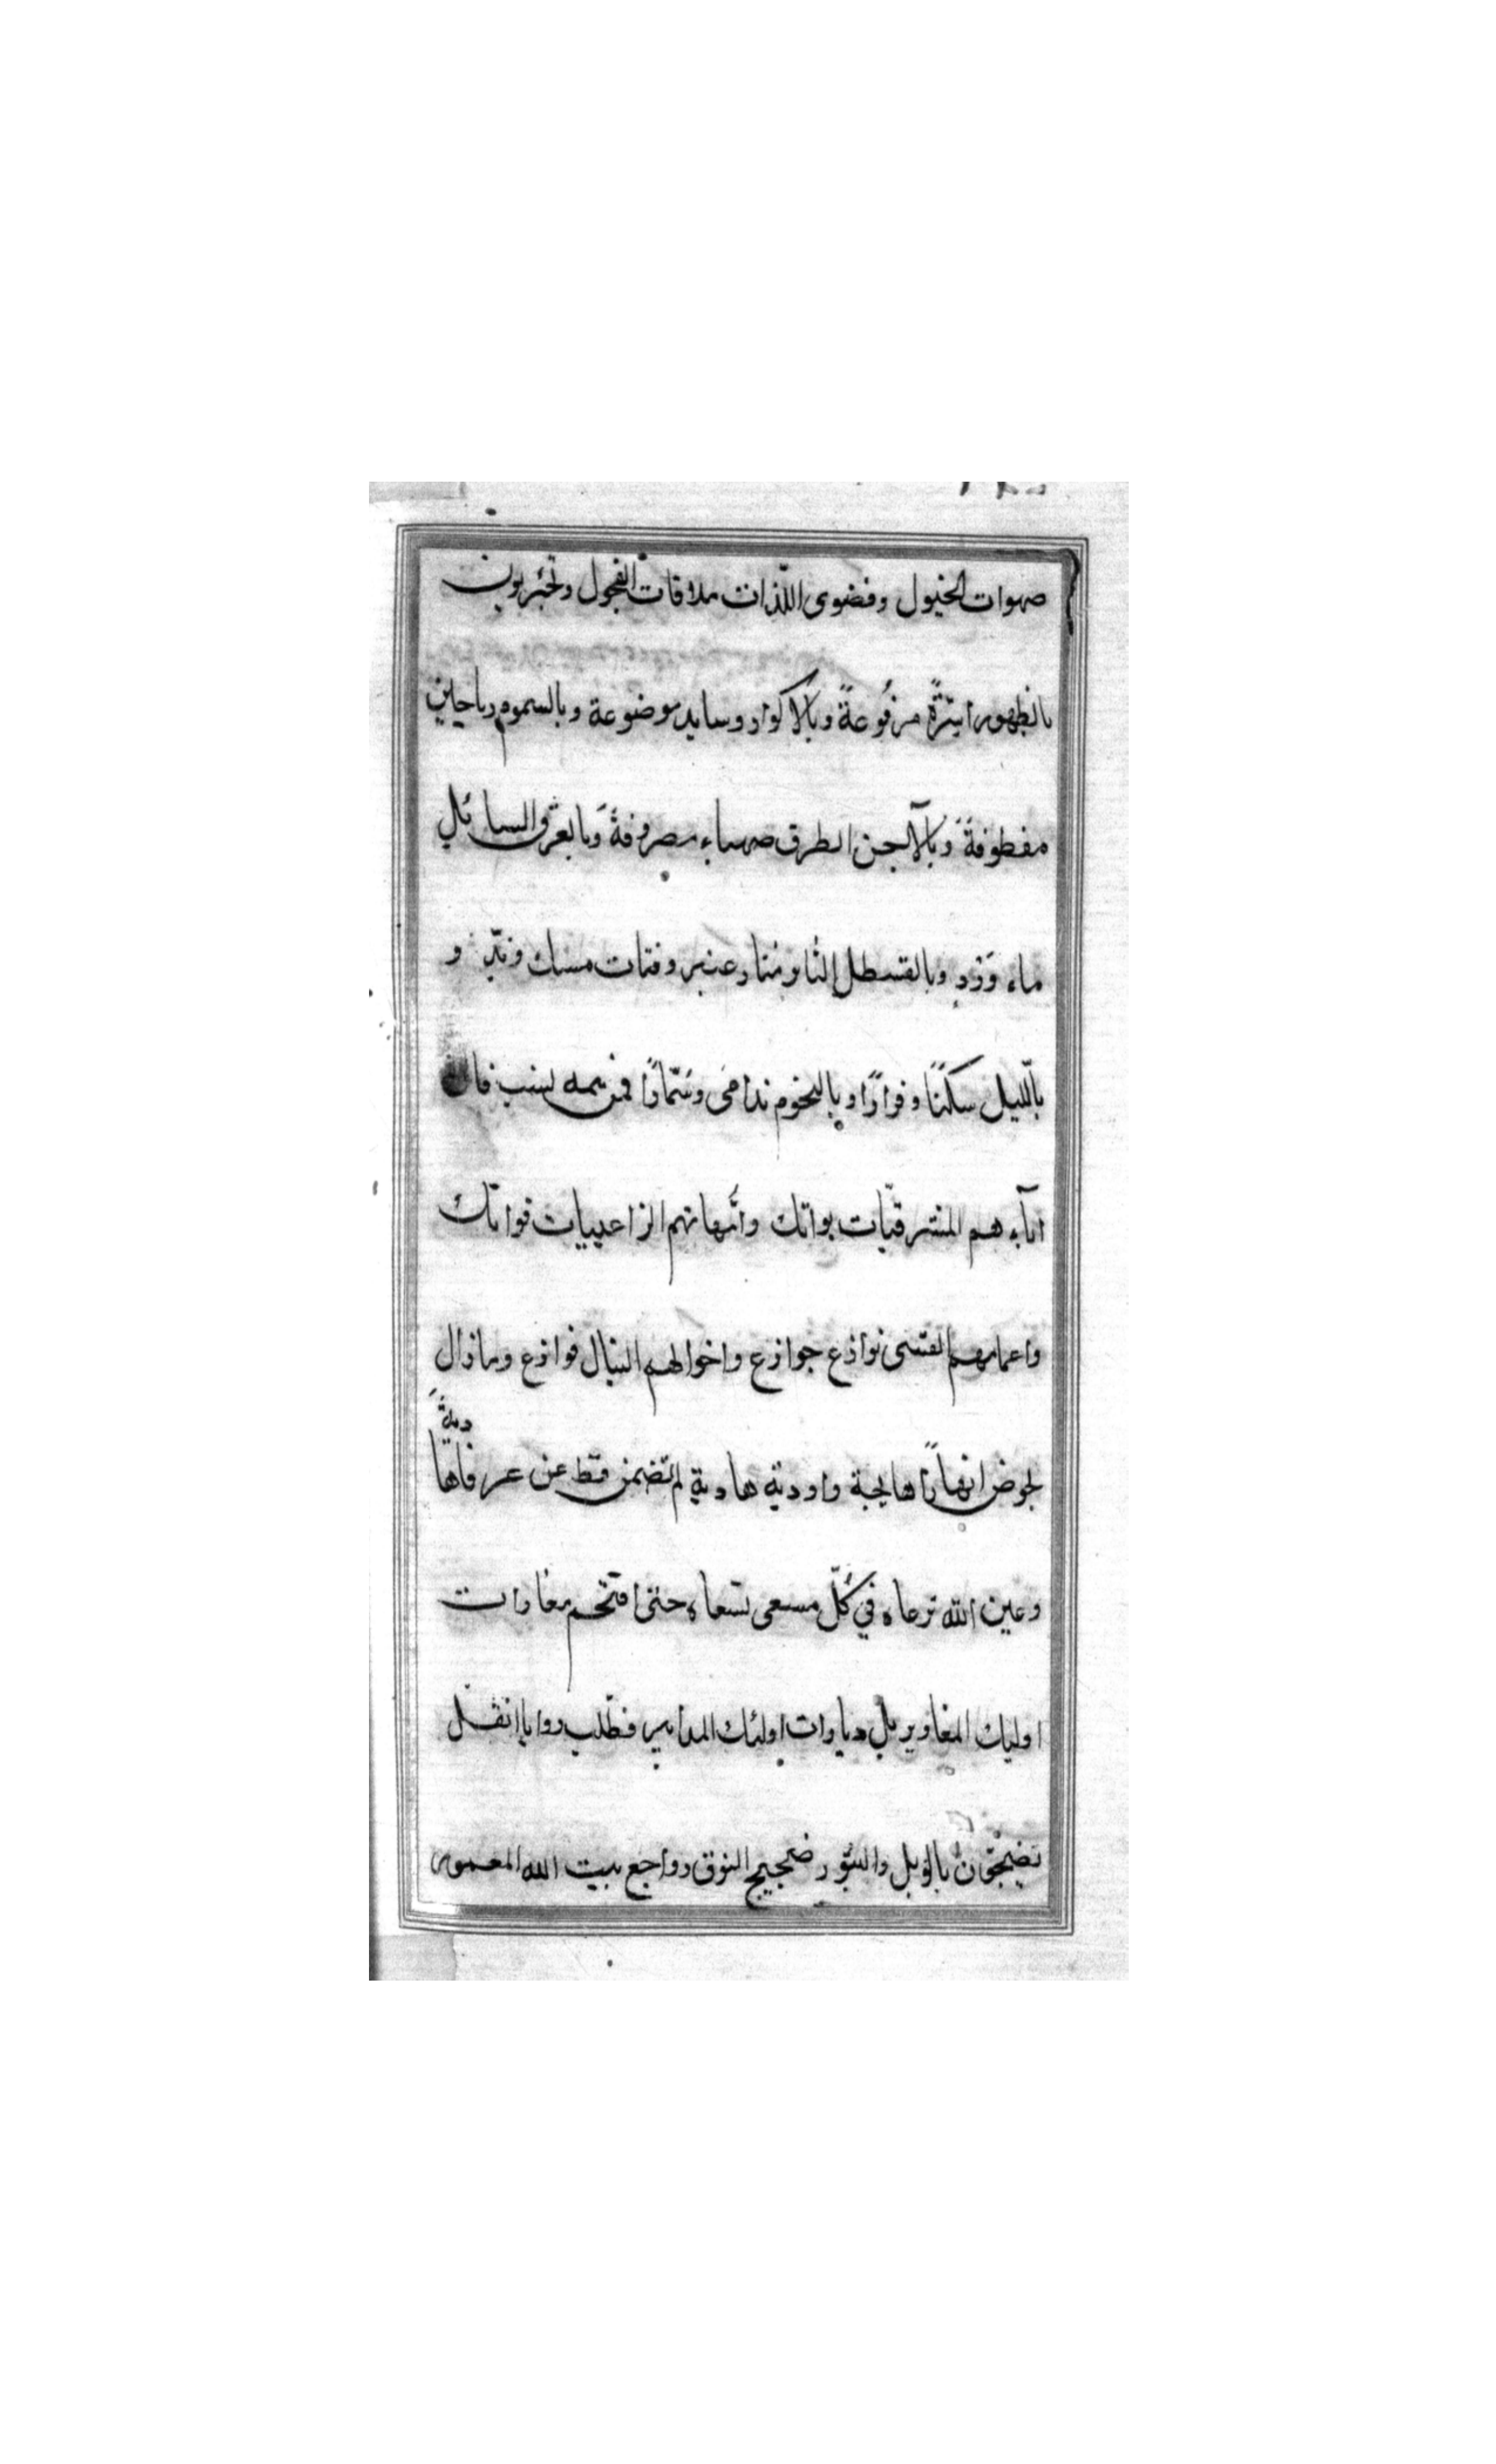 صهوات الخيول وفضوى اللّذات ملاقات الفحول وتجبّربون
بالظهور اسِرّةً مرفُوعةً وبالاكوار وسايد موضوعة وبالسموم رياحين
مقطوفةً وبالآجن الطرق صهباء مصروفةً وبالعرق السائل
ماء وَرْدٍ وبالقسطل الثاير مثار عنبر وفتات مسك وندّ و
باللّيل سكنًا وقرارًا وبالنجوم ندامى وسُمّارًا فمن يمه لسبب فان
اباءهم المشرقيّات بواتك وامّهاتهم الزاعبيات فواتك
واعمامهم القسى نوازع جوازع واخوالهم النبال قوازع وما زال
يخوض انهارًا هايجة واودية هادية لم تضمن قط عن عرفاها
ديةً
وعين الله ترعاه في كلّ مسعى تسعاه حتى اقتحم مغارات
اوليك المغاوير بل ديارات اولئك المدابير فظّلب روايا اثقل
يضجّون بالويل والثبور ضجيج النوق رواجع ببيت الله المعمور